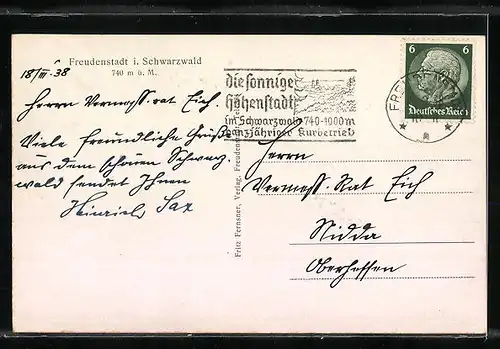 Freudenstadt i. Schwarzwald
740 m ü. M.
18/III. 38
Herrn Vermess.-rat Eich.
Viele freundliche Grüße
aus dem schönen Schwarz-
wald sendet Ihnen
Heinrich Sax
die sonnige
Höhenstadt
im Schwarzwald 740-1000m
ganzjähriger Kurbetrieb
Fritz Frensner, Verlag, Freudenstadt
6 6
Deutsches Reich
Herrn
Vermess.-Rat Eich
Nidda
Oberhessen